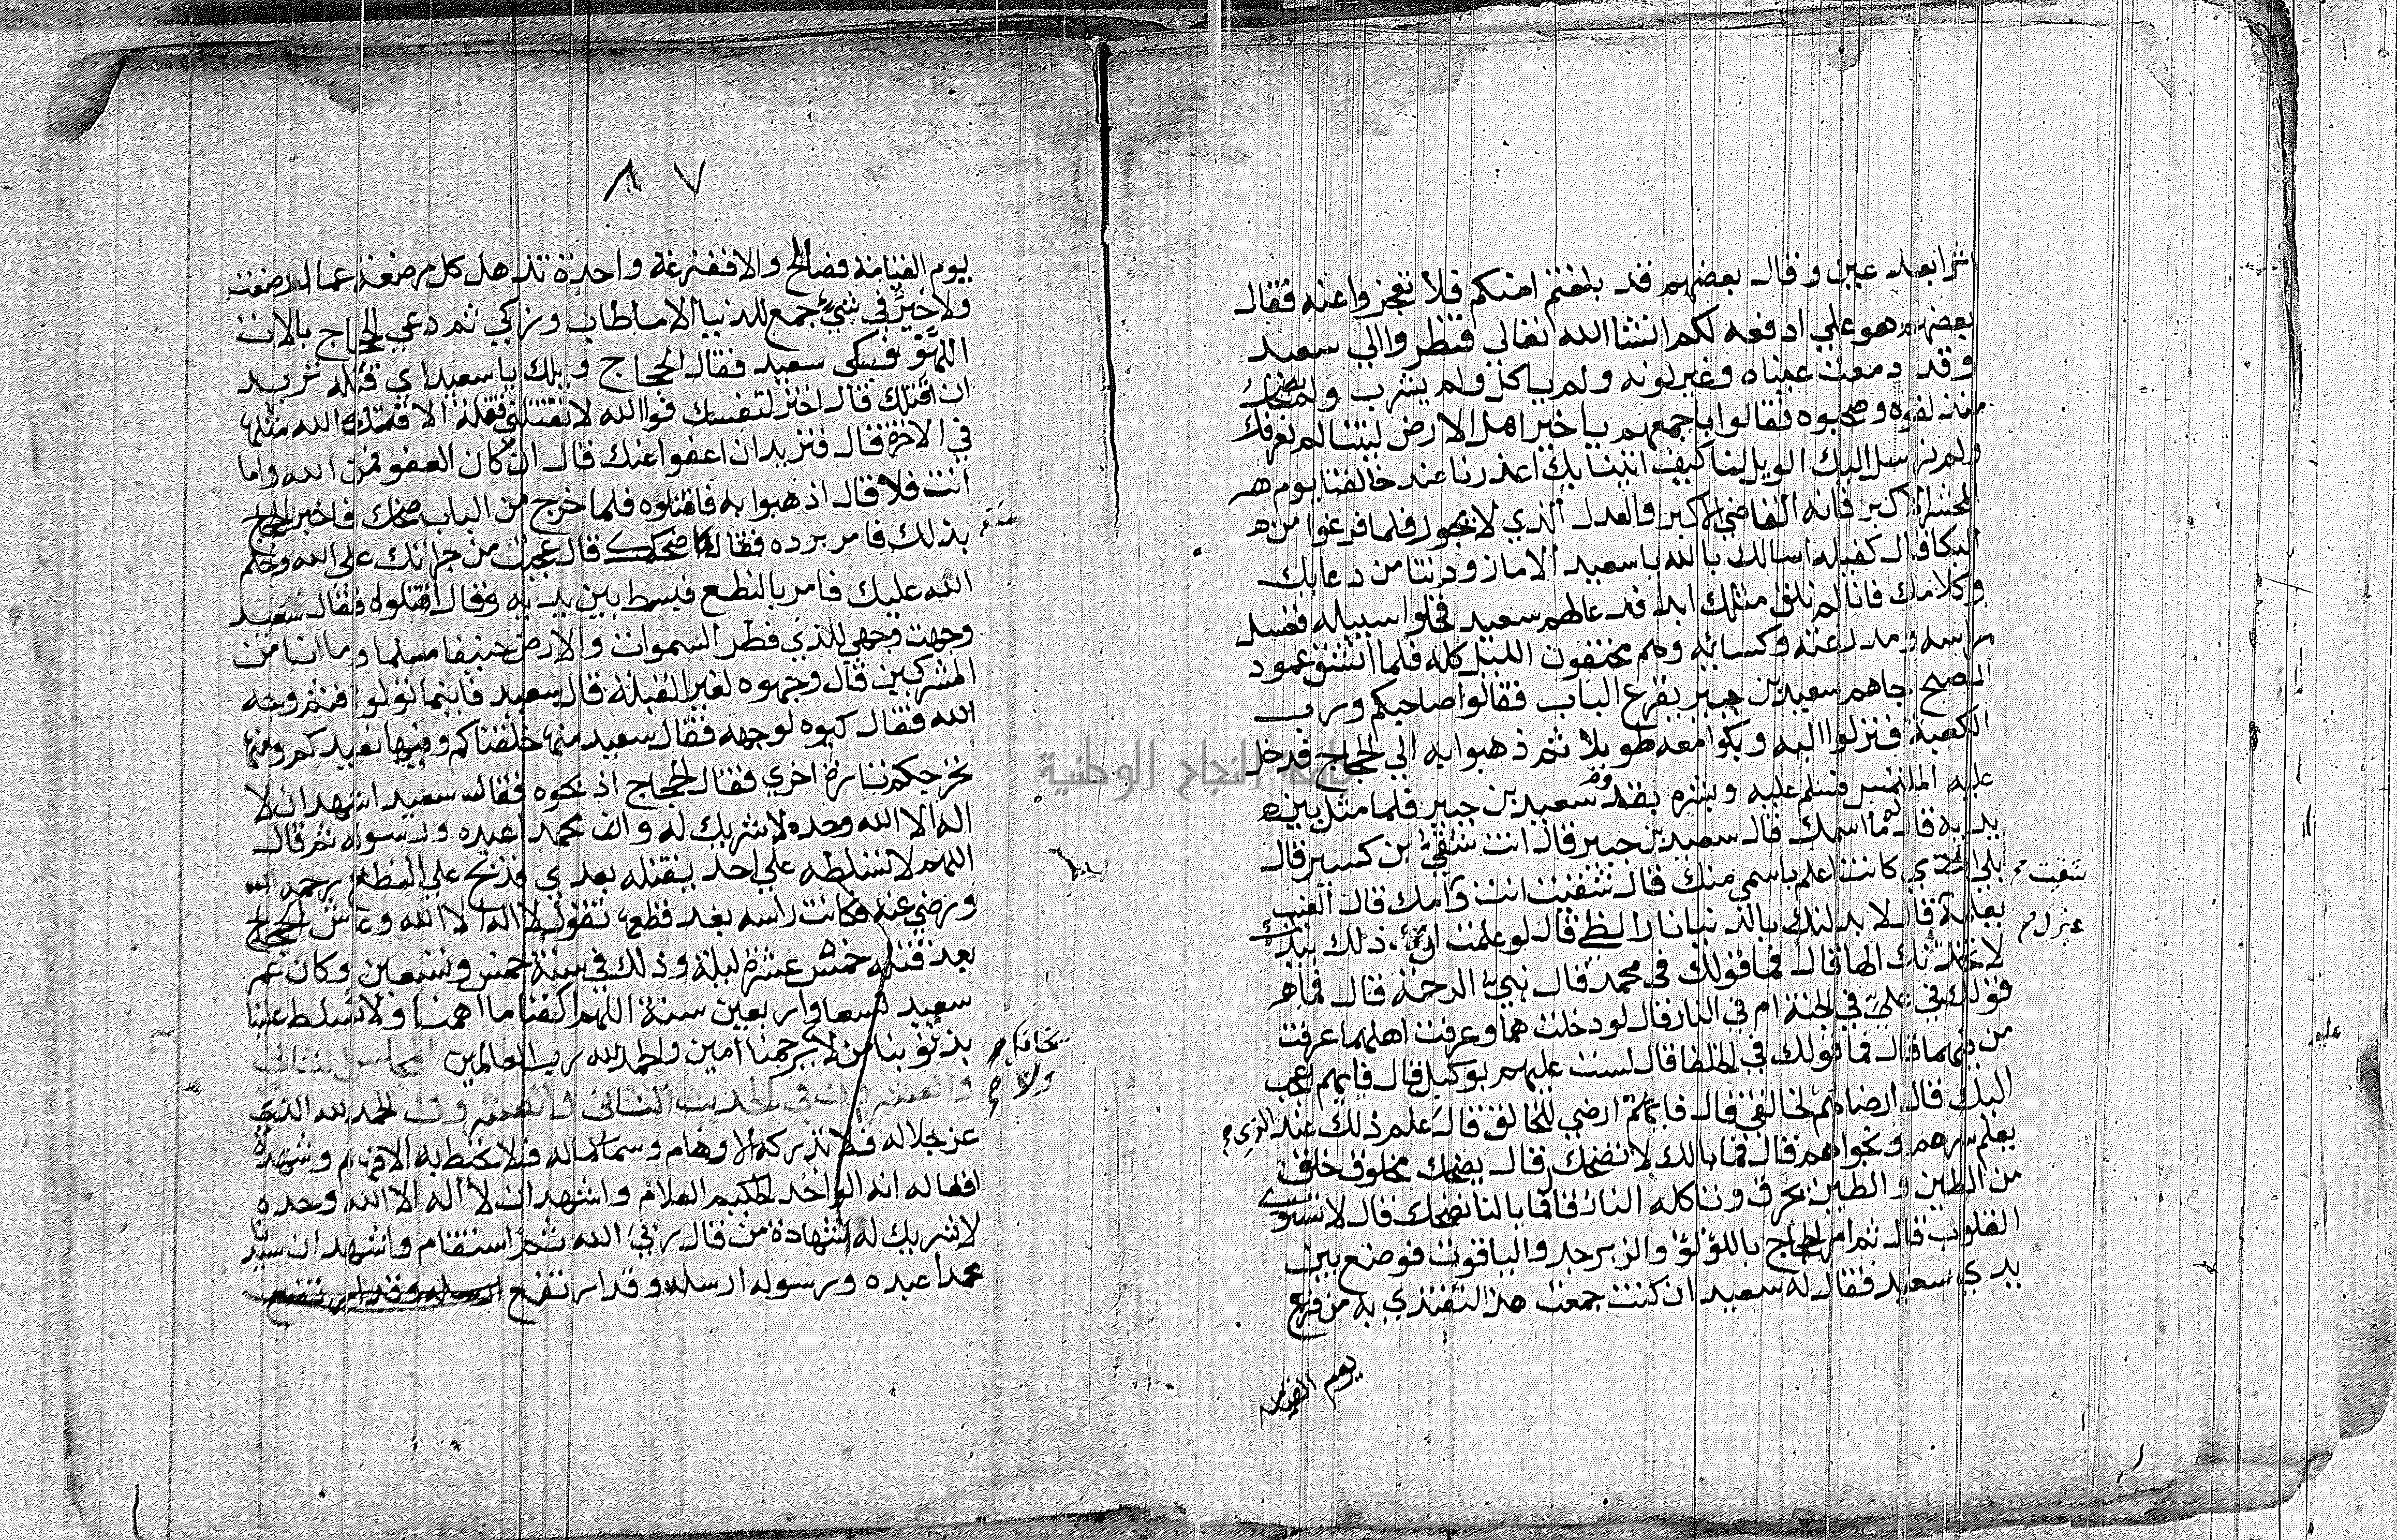 اثرا بعد عين وقال بعضهم قد بلغتم امنكم فلا تعجزوا عنه فقال
بعضهم هو علي ادفعه لكم انشا الله تعالي فنظروا الي سعيد
وقد دمعت عيناه وغير لونه ولم ياكل ولم يشرب ولم يضحك
منذ لقوه وصحبوه فقالوا باجمعهم يا خير اهل الارض ليتنا لم نعرفك
ولم نرسل اليك الويل لنا كيف ابتلينا بك اعذرنا عند خالقنا يوم
المحشر الاكبر فانه القاضي الاكبر والعدل الذي لا يجور فلما فرغوا من
البكا قال كفيله اسالك بالله يا سعيد الا ما زودتنا من دعايك
وكلامك فانا لم نلق مثلك ابدا فدعا لهم سعيد فخلوا سبيله فغسل
راسه ومدرعته وكسائه وهم مختفون الليل كله فلما انشق عمود
الصبح جاهم سعيد بن جبير يقرع الباب فقالوا صاحبكم ورب
الكعبة فنزلوا اليه وبكوا معه طويلا ثم ذهبوا به الي الحجاج فدخل
عليه الملتمس فسلم عليه وبشره بقدوم سعيد بن جبير فلما مثل بين
يديه قال له ما اسمك قال سعيد بن جبير قال انت شقي بن كسير قال
بلي امي كانت اعلم باسمي منك قال شقيت انت وامك قال الغيب
شقيت
يعلمه قال لابدلنك بالدنيا نارا تلظي قال لو علمت ان ذلك بيدك
غيرك
لاتخذتك الها قال فما قولك في محمد قال نبي الرحمة قال فما
قولك في علي في الجنة ام في النار قال لو دخلتهما وعرفت اهلهما عرفت
من فيهما قال فما قولك في الخلفا قال لست عليهم بوكيل قال فايهم اعجب
اليك قال ارضاهم لخالقي قال فايهم ارضي للخالق قال علم ذلك عند الذي
يعلم سرهم ونجواهم قال فما بالك لا تضحك قال يضحك مخلوق خلق
من الطين والطين يحرق وتاكله النار قال فما بالنا نضحك قال لا تستوي
القلوب قال ثم امر الحجاج باللؤلؤ والزبرجد والياقوت فوضع بين
يدي سعيد فقال له سعيد ان كنت جمعت هذا لتفتدي به من فزع
يوم القيامة
٨٧
يوم القيامة فصالح والا ففزعة واحدة تذهل كل مرضعة عما ارضعت
ولا خير في شيء جمع للدنيا الا ما طاب وزكي ثم دعي الحجاج بالات
اللهو فبكى سعيد فقال الحجاج ويلك يا سعيد اي قتله تريد
ان اقتلك قال اختر لنفسك فوالله لا تقتلني قتلة الا قتلك الله مثلها
في الاخرة قال فتريد ان اعفوا عنك قال ان كان العفو فمن الله واما
انت فلا قال اذهبوا به فاقتلوه فلما خرج من الباب ضحك فاخبر الحجاج
بذلك فامر برده فقال ما اضحكك قال عجبت من جراتك على الله وحلم
الله عليك فامر بالنطع فبسط بين يديه وقال اقتلوه فقال سعيد
وجهت وجهي للذي فطر السموات والارض حنيفا مسلما وما انا من
المشركين قال وجهوه لغير القبلة قال سعيد فاينما تولوا فثم وجه
الله فقال كبوه لوجهه فقال سعيد منها خلقناكم وفيها نعيدكم ومنها
نخرجكم تارة اخري فقال الحجاج اذبحوه فقال سعيد اشهد ان لا
اله الا الله وحده لا شريك له وان محمدا عبده ورسوله ثم قال
اللهم لا تسلطه علي احد يقتله بعدي فذبح علي النطع رحمه الله
ورضي عنه وكانت راسه بعد قطعها تقول لا اله الا الله وعاش الحجاج
بعد قتله خمس عشرة ليلة وذلك في سنة خمس وتسعين وكان عمر
سعيد تسعا واربعين سنة اللهم اكفنا ما اهمنا ولا تسلط علينا
بذنوبنا من لا يرحمنا امين والحمد لله رب العالمين المجلس الثاني
يخافك
ولا
والعشرون في الحديث الثاني والعشرون الحمد لله الذي
عز جلاله فلا تدركه الاوهام وسما كماله فلا يحيط به الافهام وشهدة
افعاله انه الواحد الحكيم العلام واشهد ان لا اله الا الله وحده
لا شريك له شهادة من قال ربي الله ثم استقام واشهد ان سيدنا
محمدا عبده ورسوله ارسله وقد ارتفع
جامعة النجاح الوطنية